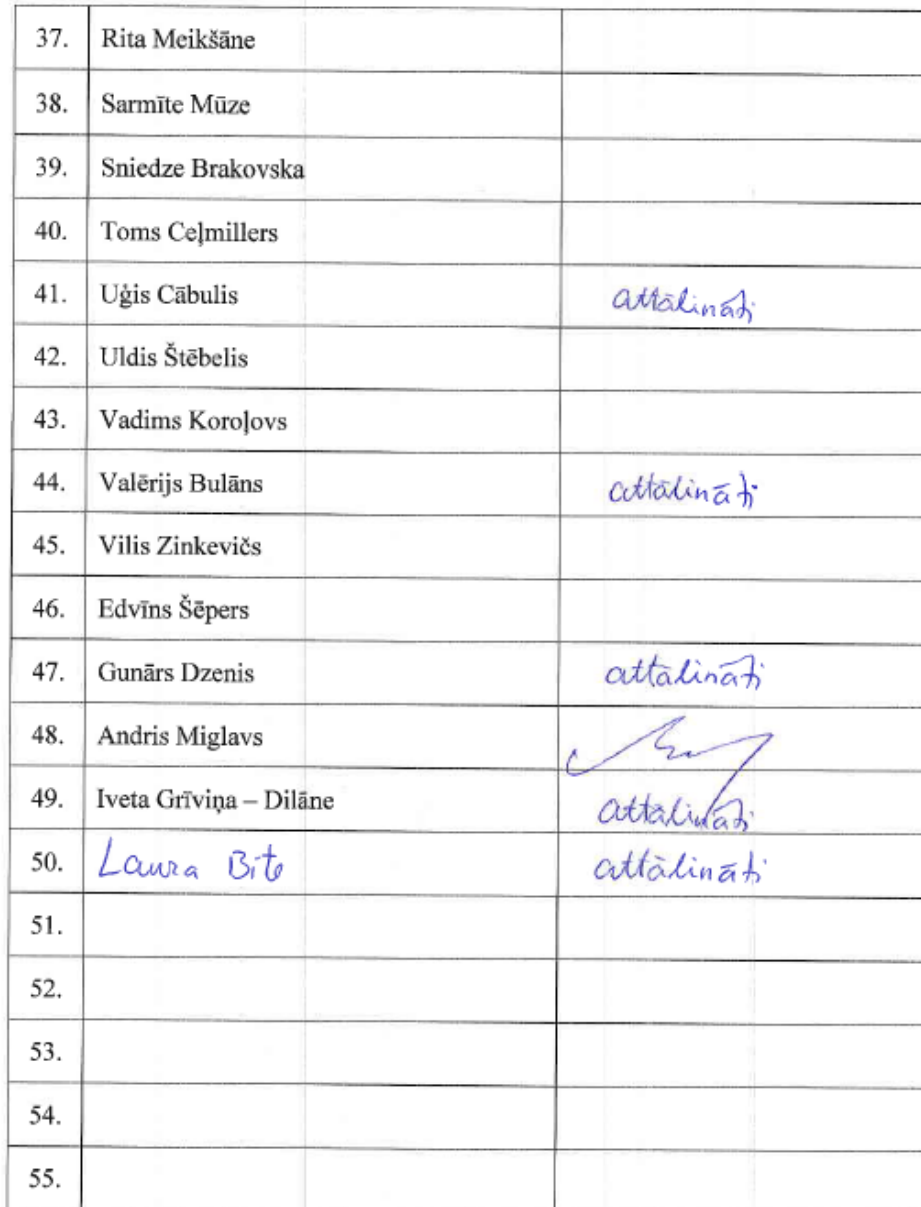 37. Rita Meikšāne
38. Sarmīte Mūze
39. Sniedze Brakovska
40. Toms Ceļmillers
41. Uģis Cābulis attālināti
42. Uldis Štēbelis
43. Vadims Koroļovs
44. Valērijs Bulāns attālināti
45. Vilis Zinkevičs
46. Edvīns Šēpers
47. Gunārs Dzenis attālināti
48. Andris Miglavs
49. Iveta Grīviņa – Dilāne attālināti
50. Laura Bite attālināti
51.
52.
53.
54.
55.